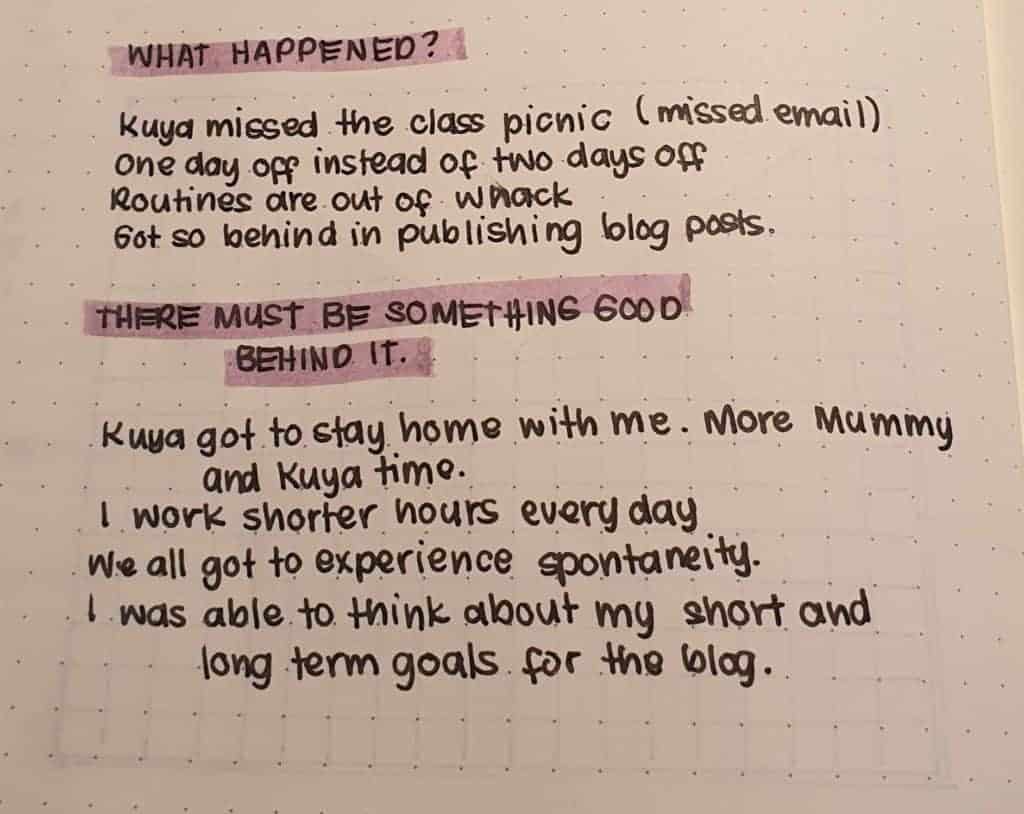 WHAT HAPPENED?
Kuya missed the class picnic (missed email)
One day off instead of two days off
Routines are out of whack
Got so behind in publishing blog posts.
THERE MUST BE SOMETHING GOOD
BEHIND IT.
Kuya got to stay home with me. More Mummy
and Kuya time.
I work shorter hours every day
We all got to experience spontaneity.
I was able to think about my short and
long term goals for the blog.